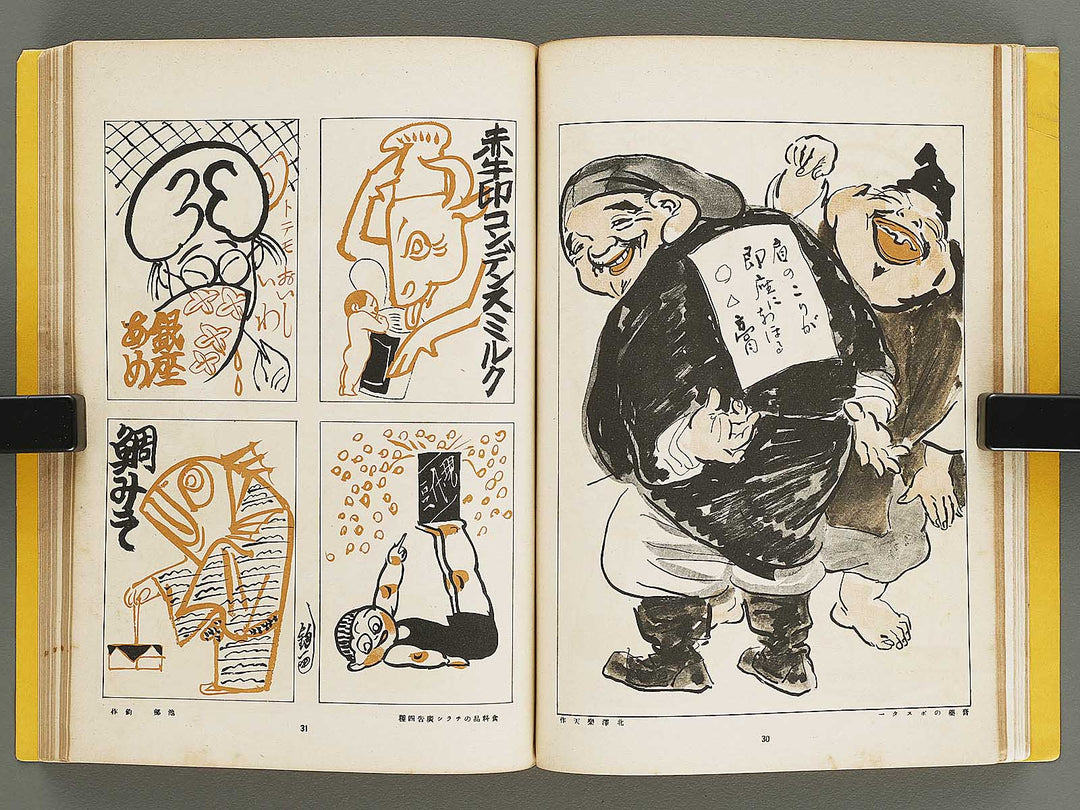 肩のこりが
即座になほる
○△膏
膏藥のポスター
北澤樂天作
30
赤牛印コンデンスミルク
トテモ
おいしい
わ
銀座
あめ
鯛みそ
食料品のチラシ廣告四種
池部 鈞作
31